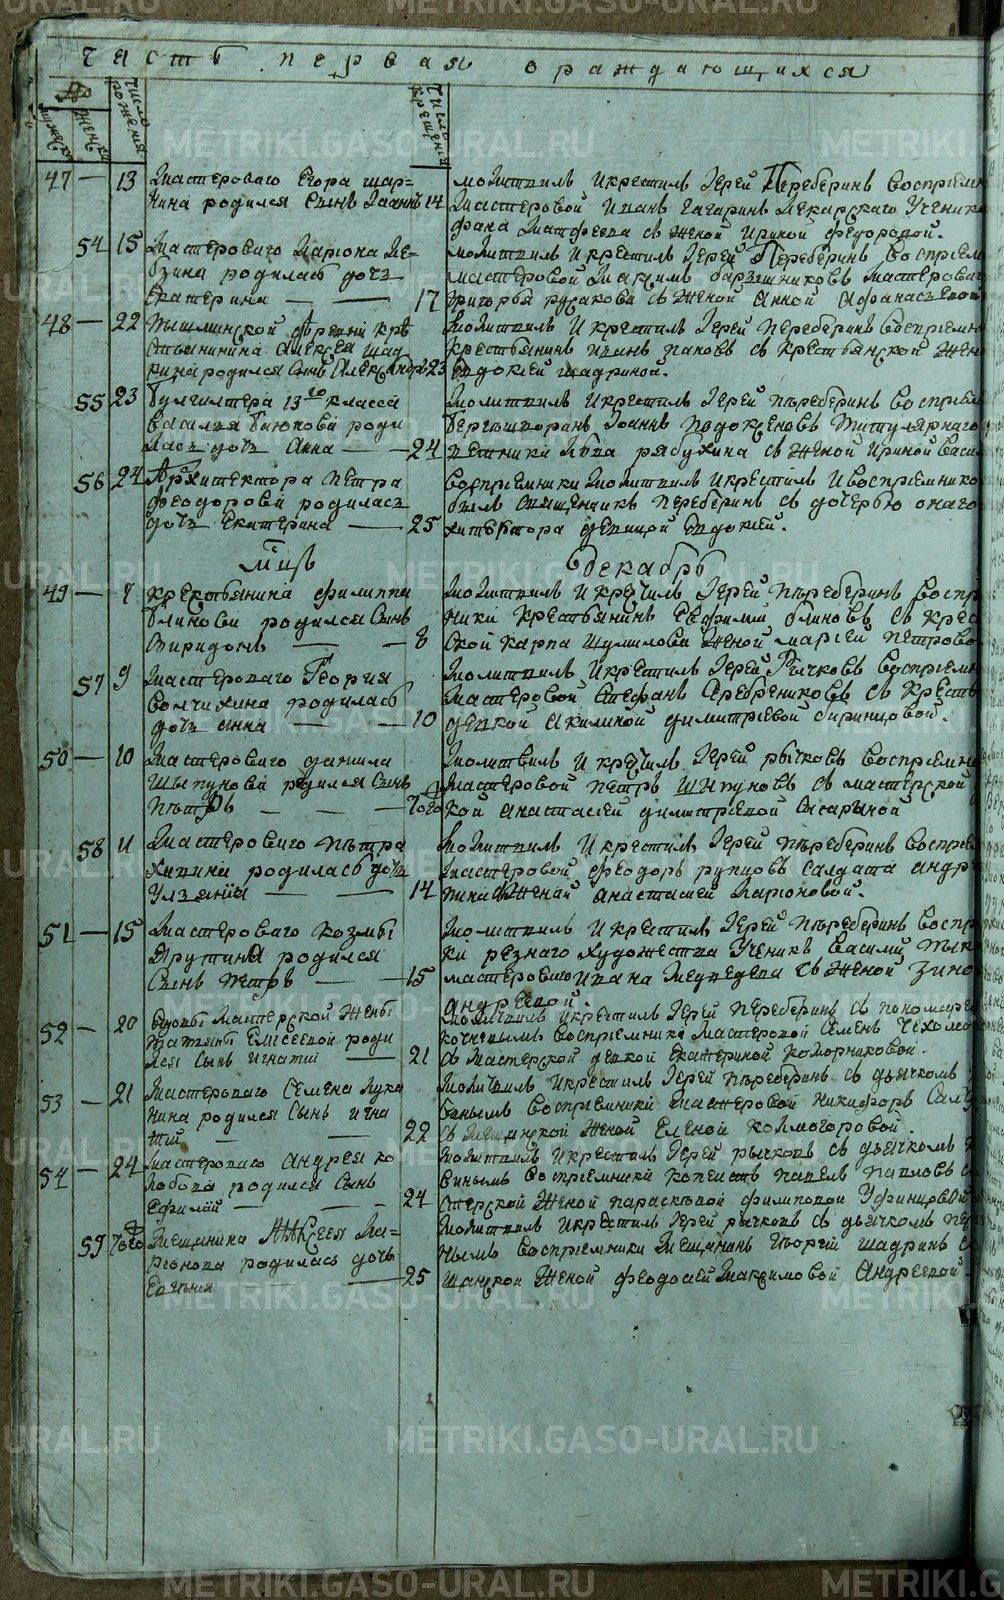 Часть первая о раждающихся
№
мужеск
женск
число рожения
число крещения
47 — 13 Мастероваго Егора шар=
нина родился Сынъ Іоаннъ 14
молитвилъ и крестилъ Іерей Переберинъ воспріем
мастеровой Иванъ Гагаринъ лекарскаго Ученик
фана Матфеева съ женой Ириной Федоровой.
54 15 Мастероваго Лариона
родилась дочь
Екатерина — — 17
молитвилъ и крестилъ Іерей Переберинъ воспріем
мастеровой Максимъ мастероваг
григорья русакова съ женой Анной Афанасьевой
48 — 22 Пышминской кре
стьянинина Алексея шад
рина родился Сынъ Александръ 23
молитвилъ и крестилъ Іерей Переберинъ воспріем
крестьянинъ иванъ пановъ съ крестьянской жен
Евдокіей шадриной.
55 23 Бухгалтера 13го класса
василья роди
лась дочь Анна — — 24
молитвилъ и крестилъ Іерей Пъреберинъ воспріем
Іоаннъ Титулярнаго
ветника Льва рябухина съ женой Ириной васи
56 24 Архитектора Петра
феодорова родилась
дочь Екатерина — 25
воспріемники молитвилъ и крестилъ и воспріемнико
былъ священникъ Переберинъ съ дочерью онаго
хитектора девицой Евдокіей.
Мцъ Декабрь
49 — 7 крестьянина филиппа
блинова родился Сынъ
Спиридонъ — — 8
молитвилъ и крестилъ Іерей Пъреберинъ воспр
ники крестьянинъ Ефимъ блиновъ съ крес
ской карпа шумилова женой марѳей петрово
57 9 мастероваго Георгия
волчихина родилась
дочь анна — — 10
молитвилъ и крестилъ Іерей Рычковъ воспріем
мастеровой Стефанъ Серебрениковъ съ кресть
девкой акилиной димитріевой биринцовой.
50 — 10 мастероваго данила
шыпунова родился Сынъ
Пътръ — — того
молитвилъ и крестилъ Іерей рычковъ воспріемни
мастеровой петръ шыпуновъ съ мастерской
кой анастасіей димитріевой
58 11 мастероваго пътра
хипина родилась дочь
Ульянія — 14
молитвилъ и крестилъ Іерей пъреберинъ воспріе
мастеровой феодоръ рупцовъ Салдата андр
женой анастасіей Ларіоновой.
51 — 15 мастероваго козмы
Ярутина родился
Сынъ Петръ — — 15
молитвилъ и крестилъ Іерей пъреберинъ воспр
ки резнаго художества Ученикъ василій
мастероваго ивана медведева съ женой Зино
андреевой.
52 — 20 вдовы мастерской жены
татьяны Елисеевой роди
лся Сынъ игнатій — 21
молитвилъ и крестилъ Іерей переберинъ съ пономаре
воспріемники мастеровой Семенъ
съ мастерской девкой Екатериной коморниковой.
53 — 21 мастероваго Семена лука
нина родился Сынъ игна
тій — — 22
молитвилъ и крестилъ Іерей пъреберинъ съ дьячкомъ
бинымъ воспріемники мастеровой никифоръ
съ мещанской женой Еленой колмогоровой.
54 — 24 мастероваго андрея ко
лобова родился Сынъ
Ефимій — — 24
молитвилъ и крестилъ Іерей рычковъ съ дьячкомъ
бинымъ воспріемники копеистъ павелъ павловъ
стерской женой парасковой филиповой Уфинцовой
59 того мещанина Алексея Ла=
ріонова родилась дочь
Евгенія — 25
молитвилъ и крестилъ Іерей рычковъ съ дьячкомъ
нымъ воспріемники мещанинъ Георгій шадринъ
щанской женой феодосіей максимовой Андреевой.
METRIKI.GASO-URAL.RU